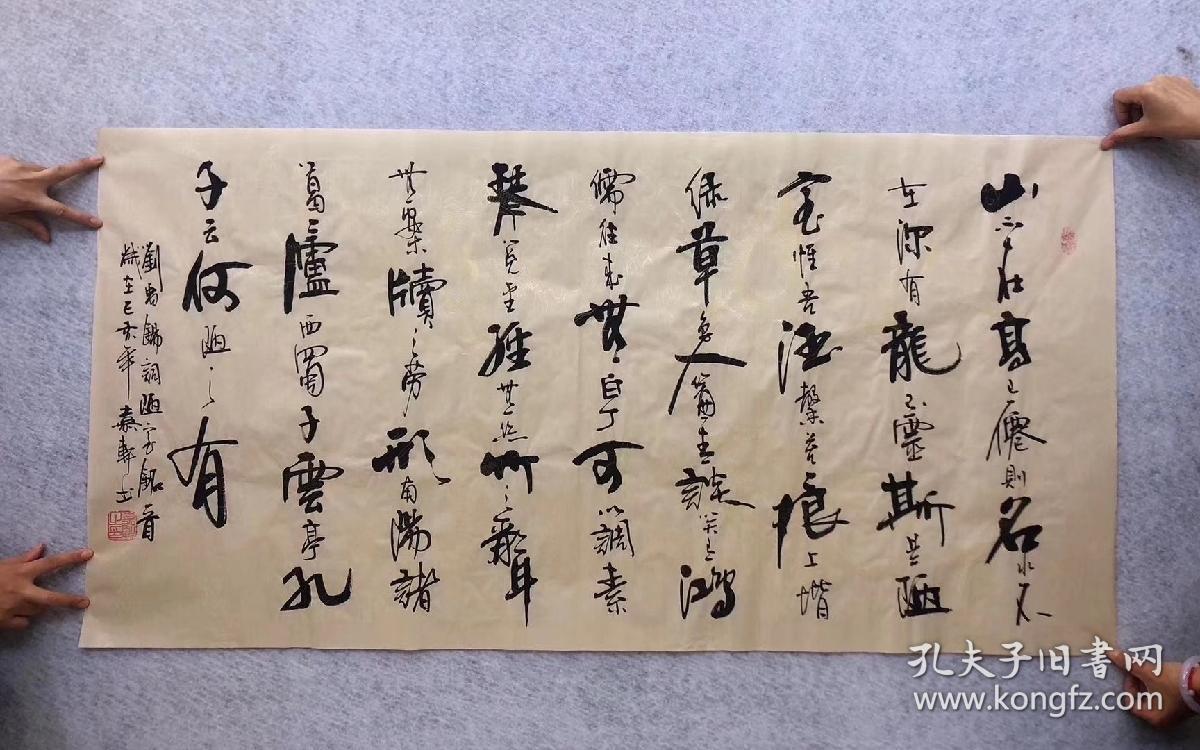 山不在高有僊則名水不
在深有龍則靈斯是陋
室惟吾德馨苔痕上堦
綠草色入簾青談笑有鴻
儒往來無白丁可以調素
琴閱金經無絲竹之亂耳
無案牘之勞形南陽諸
葛廬西蜀子雲亭孔
子云何陋之有
劉禹錫詞陋室銘首
歲在己亥年
孔夫子旧书网
www.kongfz.com